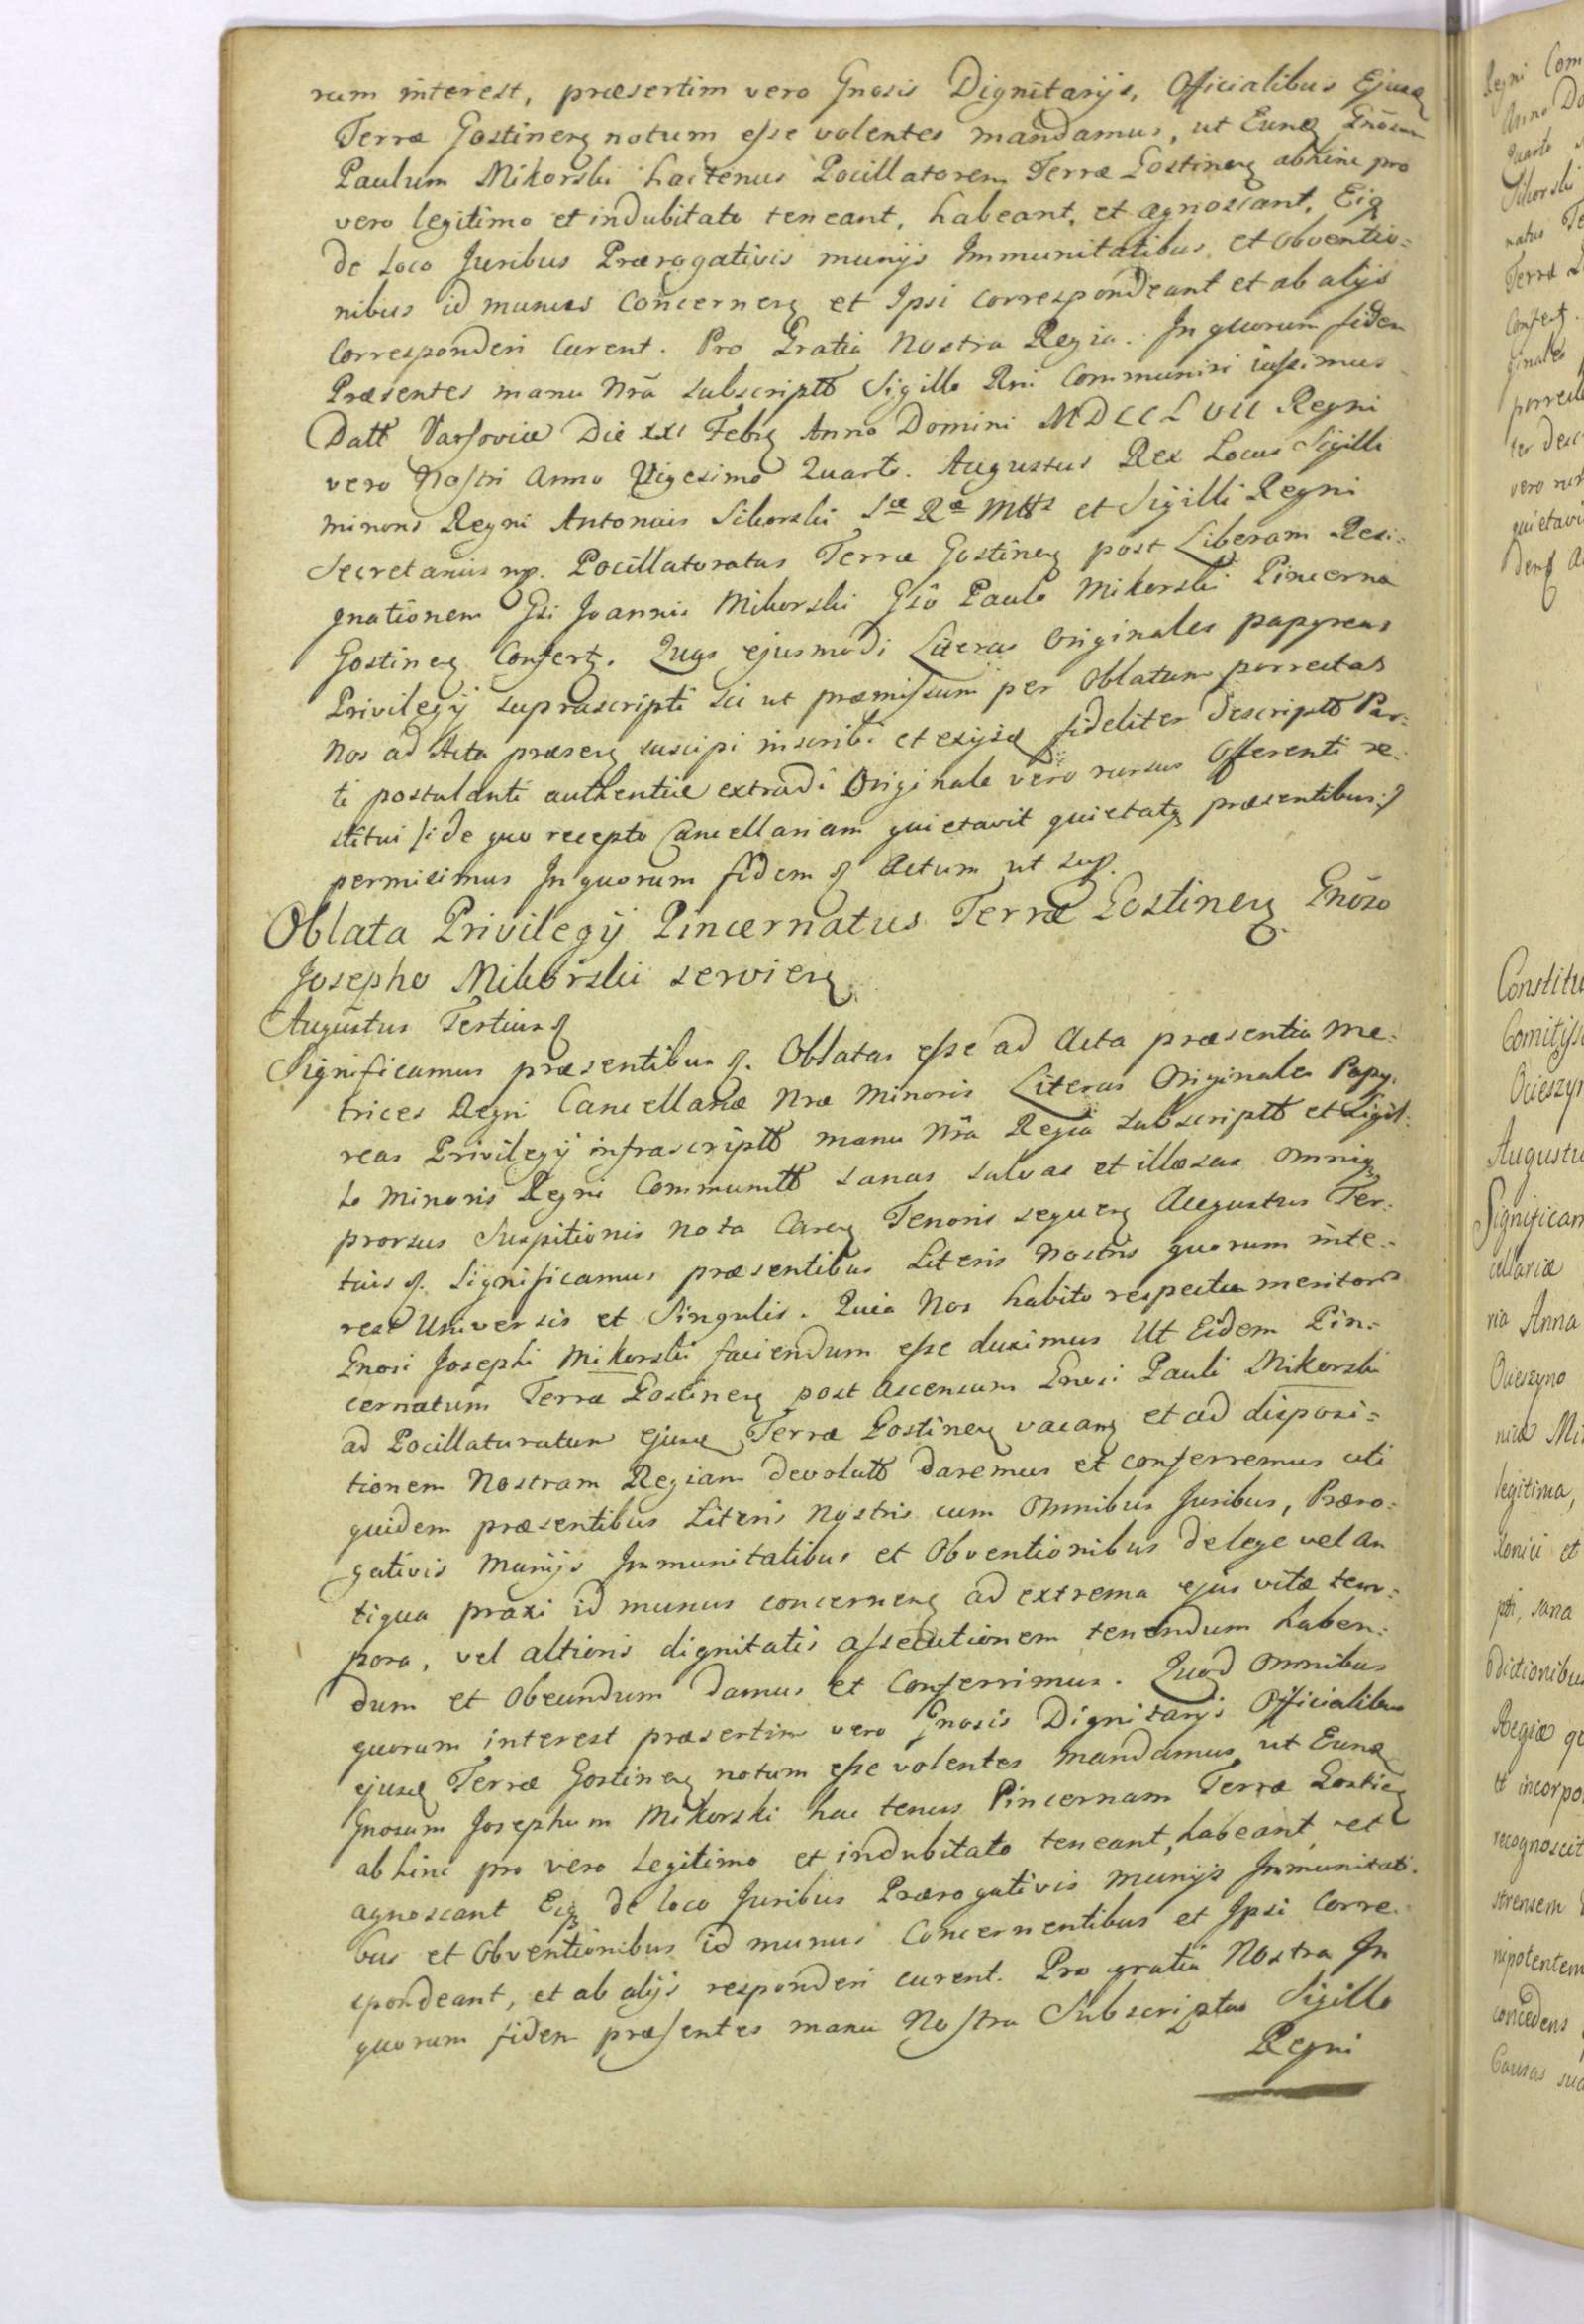 rum interest, præsertim vero Gnosis Dignitarijs, Officialibus Ejusq
Terræ Gostineng notum esse volentes mandamus, ut Eunq Gnosum
Paulum Mikorski hactenus Pocillatorem Terræ Gostineng abhinc pro
vero legitimo et indubitato teneant, habeant, et agnoscant, Eiq
de Loco Juribus Prærogativis munijs Immunitatibus et Obventio=
nibus id munus concerneng et Ipsi correspondeant et ab alijs
corresponderi curent. Pro Gratia Nostra Regia. In quorum fidem
Præsentes manu Nrã subscriptt Sigillo Rni Communiri iussimus
Datt Varsoviæ Die XXI Febrg Anno Domini MDCCLVII Regni
vero Nostri Anno Vigesimo Quarto. Augustus Rex Locus Sigilli
minoris Regni Antonius Sikorski Sæ Ræ Mtts et Sigilli Regni
Secretarius mp. Pocillatoratus Terræ Gostineng post Liberam Resi=
gnationem Gsi Joannis Mikorski Gsõ Paulo Mikorski Pincernæ
Gostineng Confertg. Quas ejusmodi Literas Originales papyreas
Privilegij suprascripti sic ut præmissum per Oblatam porrectas
Nos ad Acta præseng suscipi inscribi et exijsq fideliter descriptt Par=
ti postulanti authentice extradi Originale vero rursus Offerenti re=
stitui /:de quo recepto Cancellariam quietavit quietatq præsentibus:/
permisimus In quorum fidem & Actum ut sup.
Oblata Privilegij Pincernatus Terræ Gostineng Gnõso
Josepho Mikorski servieng
Augustus Tertius &
Significamus præsentibus &. Oblatas esse ad Acta præsentia Me=
trices Regni Cancellariæ Nræ Minoris Literas Originales Papy=
reas Privilegij infrascriptt manu Nrã Regia subscriptt et Sigil=
lo Minoris Regni Communitt sanas salvas et illæsas omniq
prorsus Suspitionis nota careng Tenoris sequeng Augustus Ter=
tius &. Significamus præsentibus Literis Nostris quorum inte=
rest Universis et Singulis. Quia Nos habito respectu meritor
Gnosi Josephi Mikorski faciendum esse duximus Ut Eidem Pin=
cernatum Terræ Gostineng post Ascensum Gnosi Pauli Mikorski
ad Pocillaturatum ejusq Terræ Gostineng vacang et ad disposi=
tionem Nostram Regiam devolutt daremus et conferremus uti
quidem præsentibus Literis Nostris cum Omnibus Juribus, Præro=
gativis Munijs Immunitatibus et Obventionibus de lege vel an
tiqua praxi id munus concerneng ad extrema ejus vitæ tem=
pora, vel altioris dignitatis assecutionem tenendum haben=
dum et Obeundum damus et Conferrimus. Quod Omnibus
quorum interest præsertim vero Gnosis Dignitarijs Officialibus
ejusq Terræ Gostineng notum esse volentes mandamus, ut Eunq
Gnosum Josephum Mikorski hac tenus Pincernam Terræ Gostieg
abhinc pro vero Legitimo et indubitato teneant, habeant, et
agnoscant Eiq de loco Juribus Prærogativis Munijs Immunitati=
bus et Obventionibus id munus Concernentibus et Ipsi Corre=
spondeant, et ab alijs responderi curent. Pro gratia Nostra In
quorum fidem præsentes manu Nostra Subscriptas Sigillo
Regni